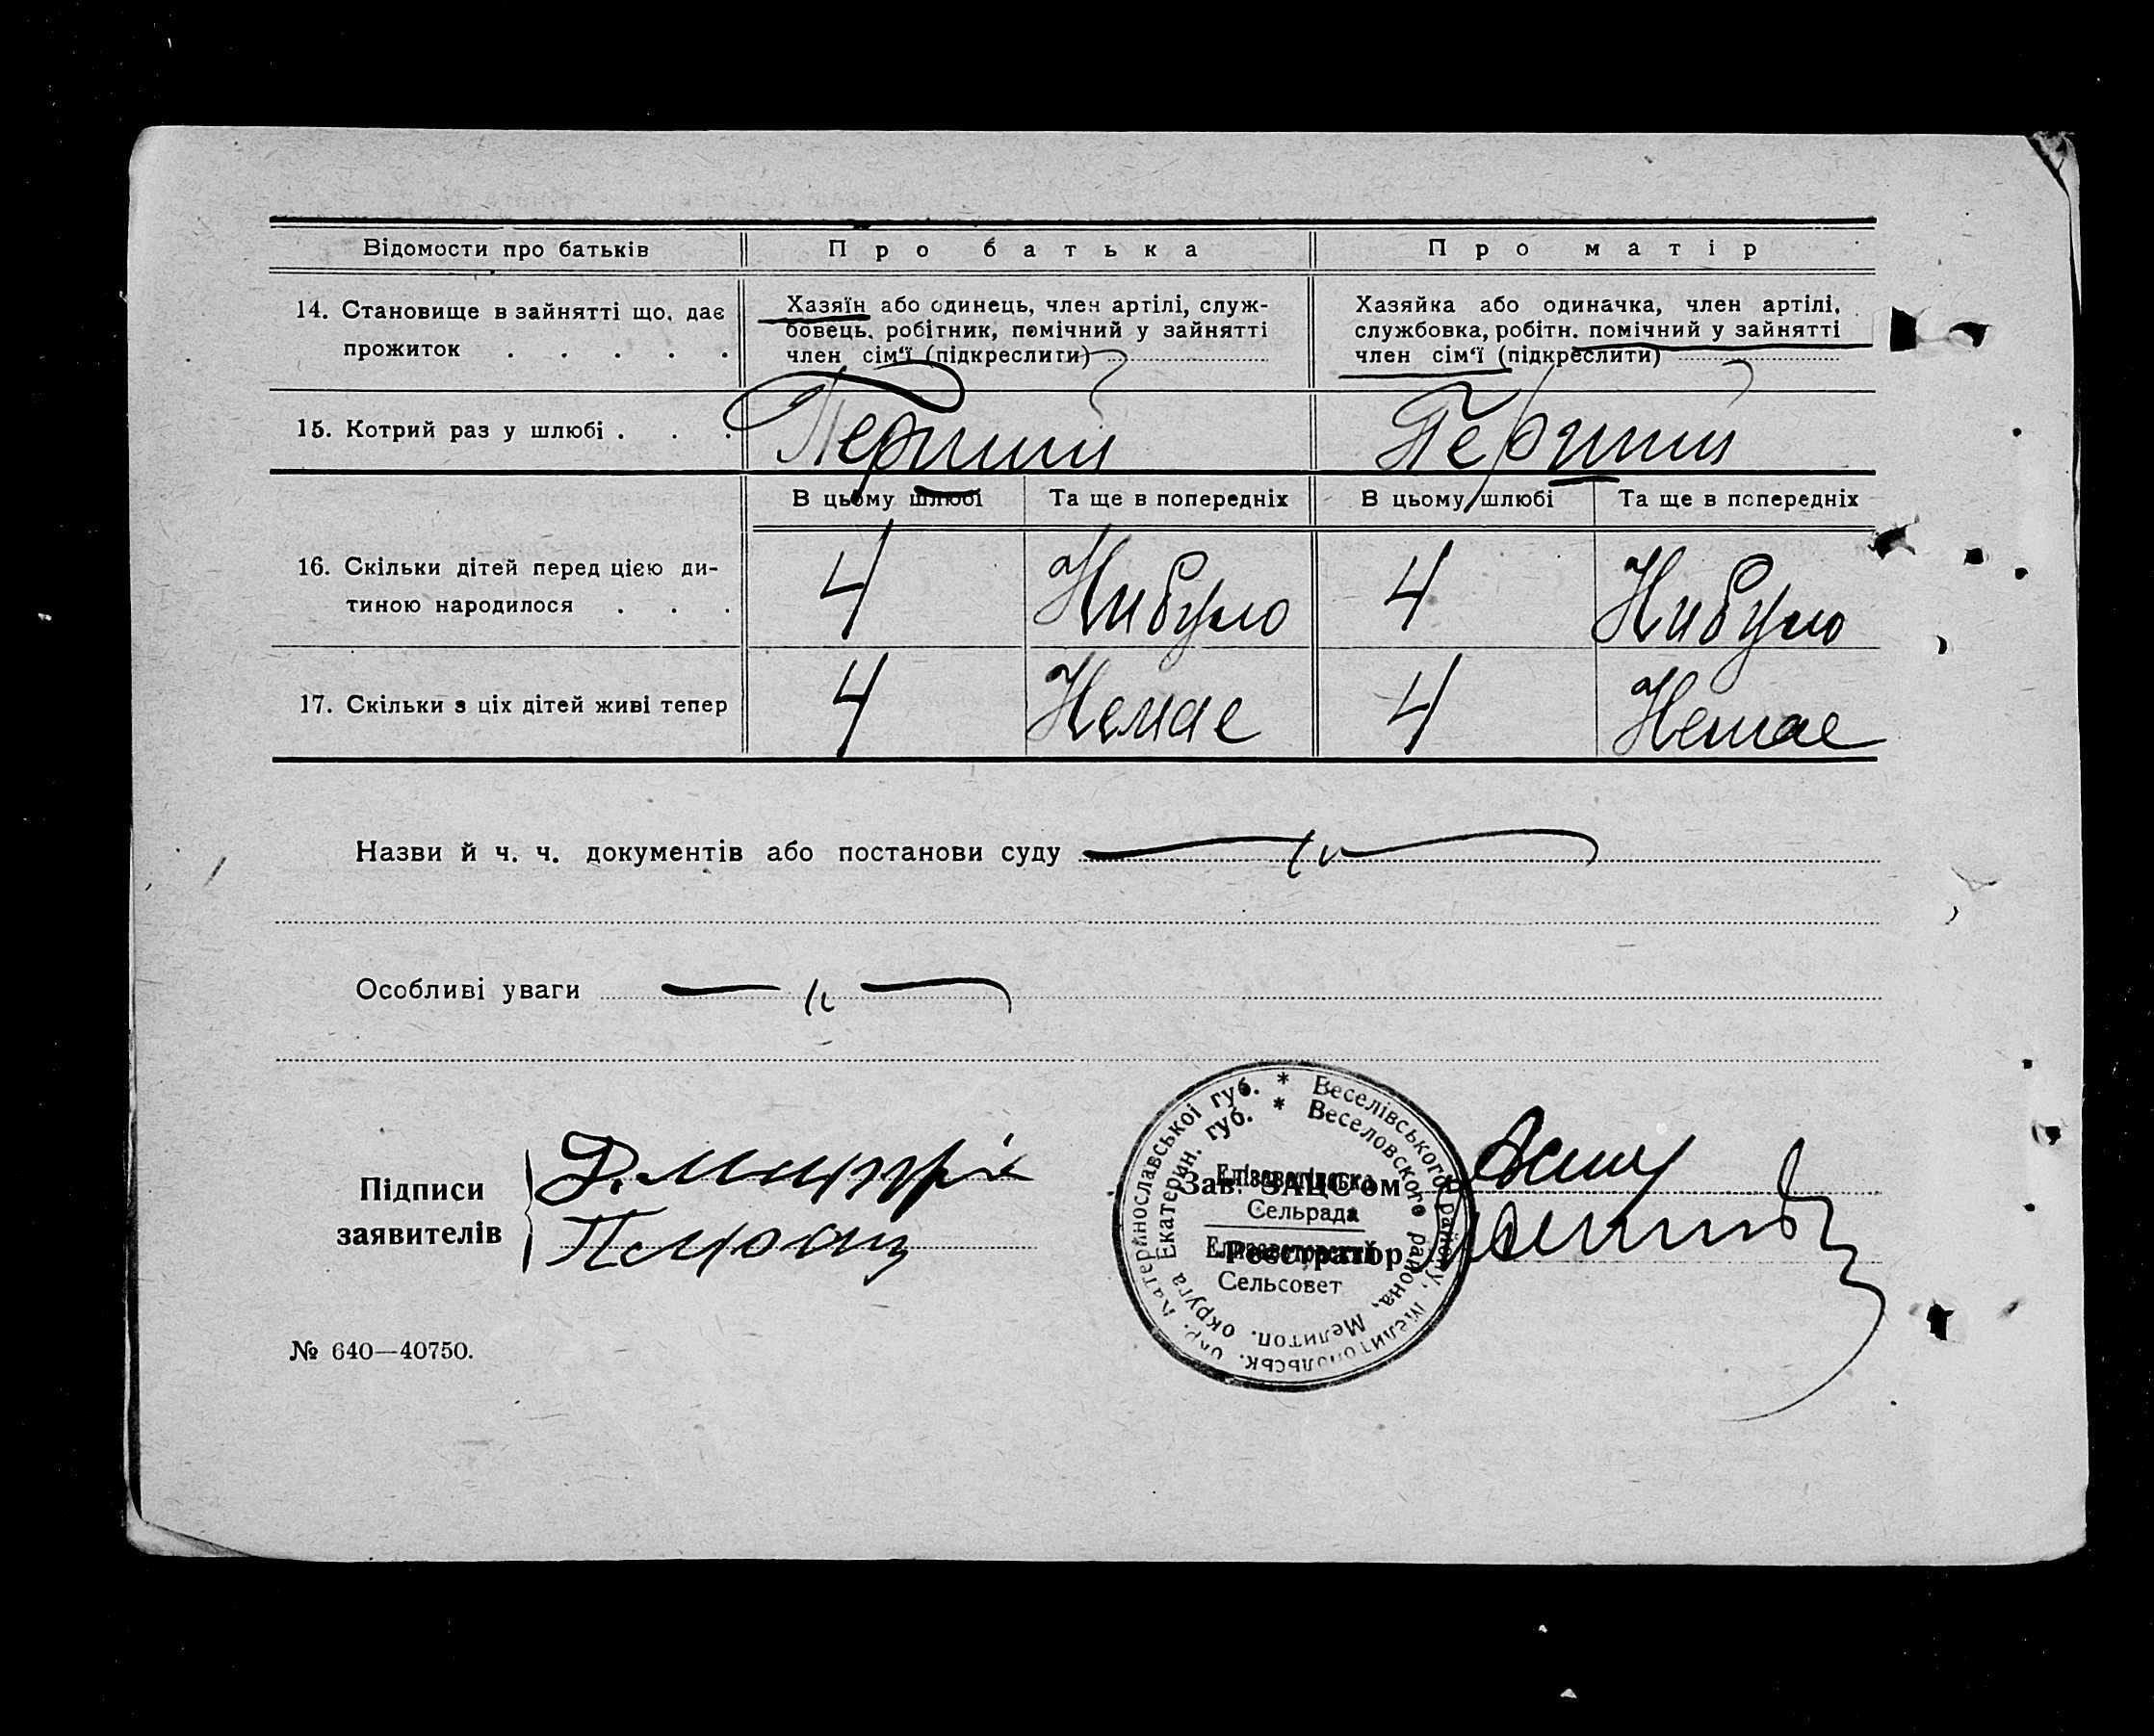 Відомости про батьків
Про батька
Про матір
14. Становище в зайнятті що, дає
прожиток . . . . .
Хазяїн або одинець, член артілі, служ-
бовець, робітник, помічний у зайнятті
член сім'ї (підкреслити)
Хазяйка або одиначка, член артілі,
службовка, робітн. помічний у зайнятті
член сім'ї (підкреслити)
15. Котрий раз у шлюбі . . .
Перший
Перший
В цьому шлюбі
Та ще в попередніх
В цьому шлюбі
Та ще в попередніх
16. Скільки дітей перед цією ди-
тиною народилося . . .
4
Нибуло
4
Нибуло
17. Скільки з ціх дітей живі тепер
4
Немае
4
Немае
Назви й ч. ч. документів або постанови суду
Особливі уваги
Підписи
заявителів
Зав. ЗАЦС'ом
Реєстратор
* Веселівського району, Мелитопольськ. окр. Катеринославської губ.
* Веселовского района, Мелитоп. округа Екатерин. губ.
Єлізаветівська
Сельрада
Елизаветовский
Сельсовет
№ 640—40750.